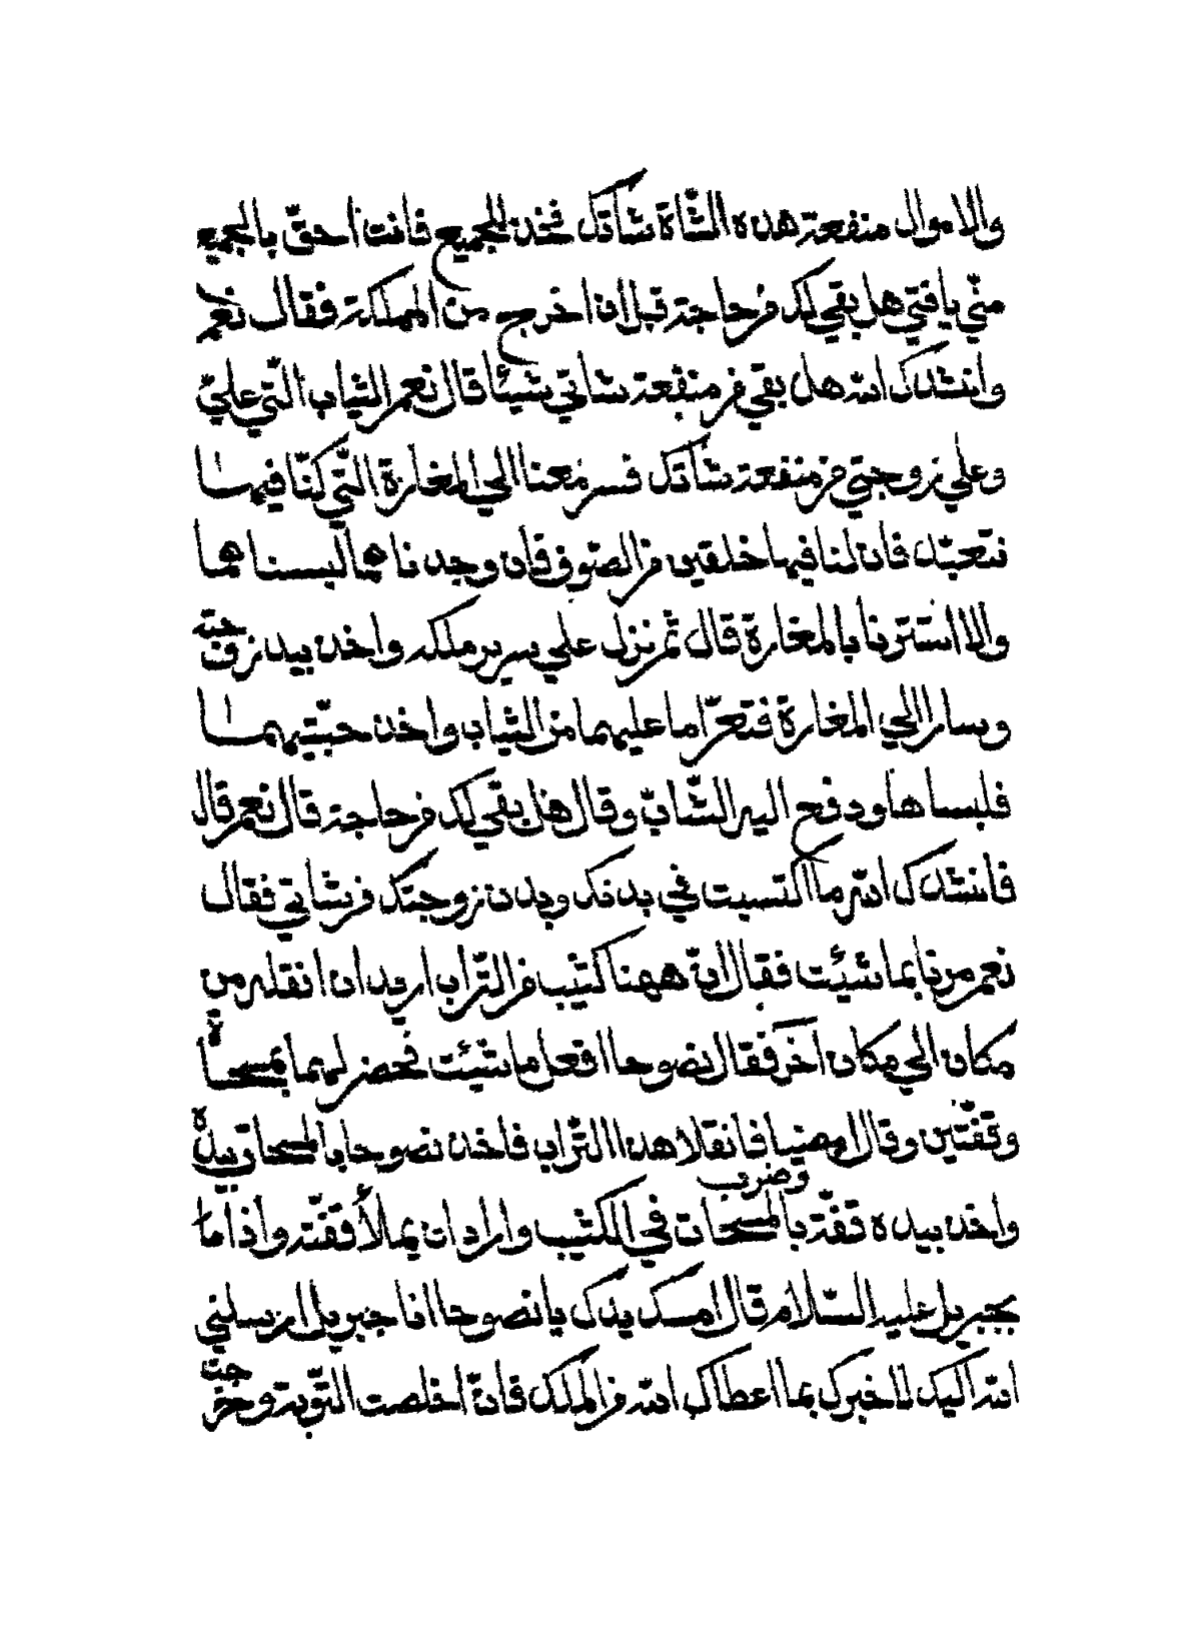 والاموال منفعة هذه الشّاة شاتك فخذ الجميع فانت احقّ بالجميع
منّي يا فتي هل بقي لك من حاجة قبل ان اخرج من المملكة فقال نعم
وانشدك الله هل بقي من منفعة شاتي شيئا قال نعم الثياب الّتي عليّ
وعلي زوجتي من منفعة شاتك فسر معنا الي المغارة الّتي كنّا فيها
نتعبّد فان لنا فيها خلقين من الصّوف فان وجدناهما لبسناهما
والا استترنا بالمغارة قال ثم نزل علي سرير ملكه واخذ بيد زوجته
وسارا الي المغارة فتعرّا ما عليهما من الثياب واخذ جبّتيهما
فلبساها ودفع اليه الشّابّ وقال هل بقي لك من حاجة قال نعم قال
فانشدك الله ما اكتسيت في بدنك وبدن زوجتك من شاتي فقال
نعم مرنا بما شيئت فقال انّ ههنا كثيب من التّراب اريد ان انقله من
مكان الي مكان آخر فقال نصوحا افعل ما شيئت فحضر لهما بمسحاة
وقفّتين وقال امضيا فانقلا هذا التّراب فاخذ نصوحا بالمسحات بيده
واخذ بيده قفّة وضرب بالمسحات في الكثيب واراد ان يملأ قفّته واذا ما
بجبريل عليه السّلام قال امسك يدك يا نصوحا انا جبريل ارسلني
الله اليك لاخبرك بما اعطاك الله من الملك فانّ اخلصت التّوبة وخرجت